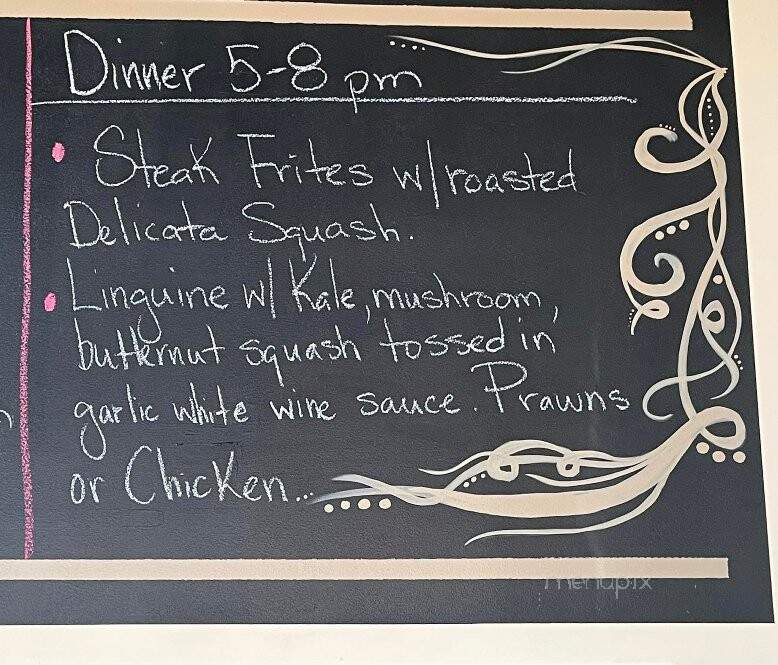 Dinner 5-8 pm
• Steak Frites w/roasted
Delicata Squash.
• Linguine w/ Kale, mushroom,
butternut squash tossed in
garlic white wine sauce. Prawns
or Chicken...
menupix